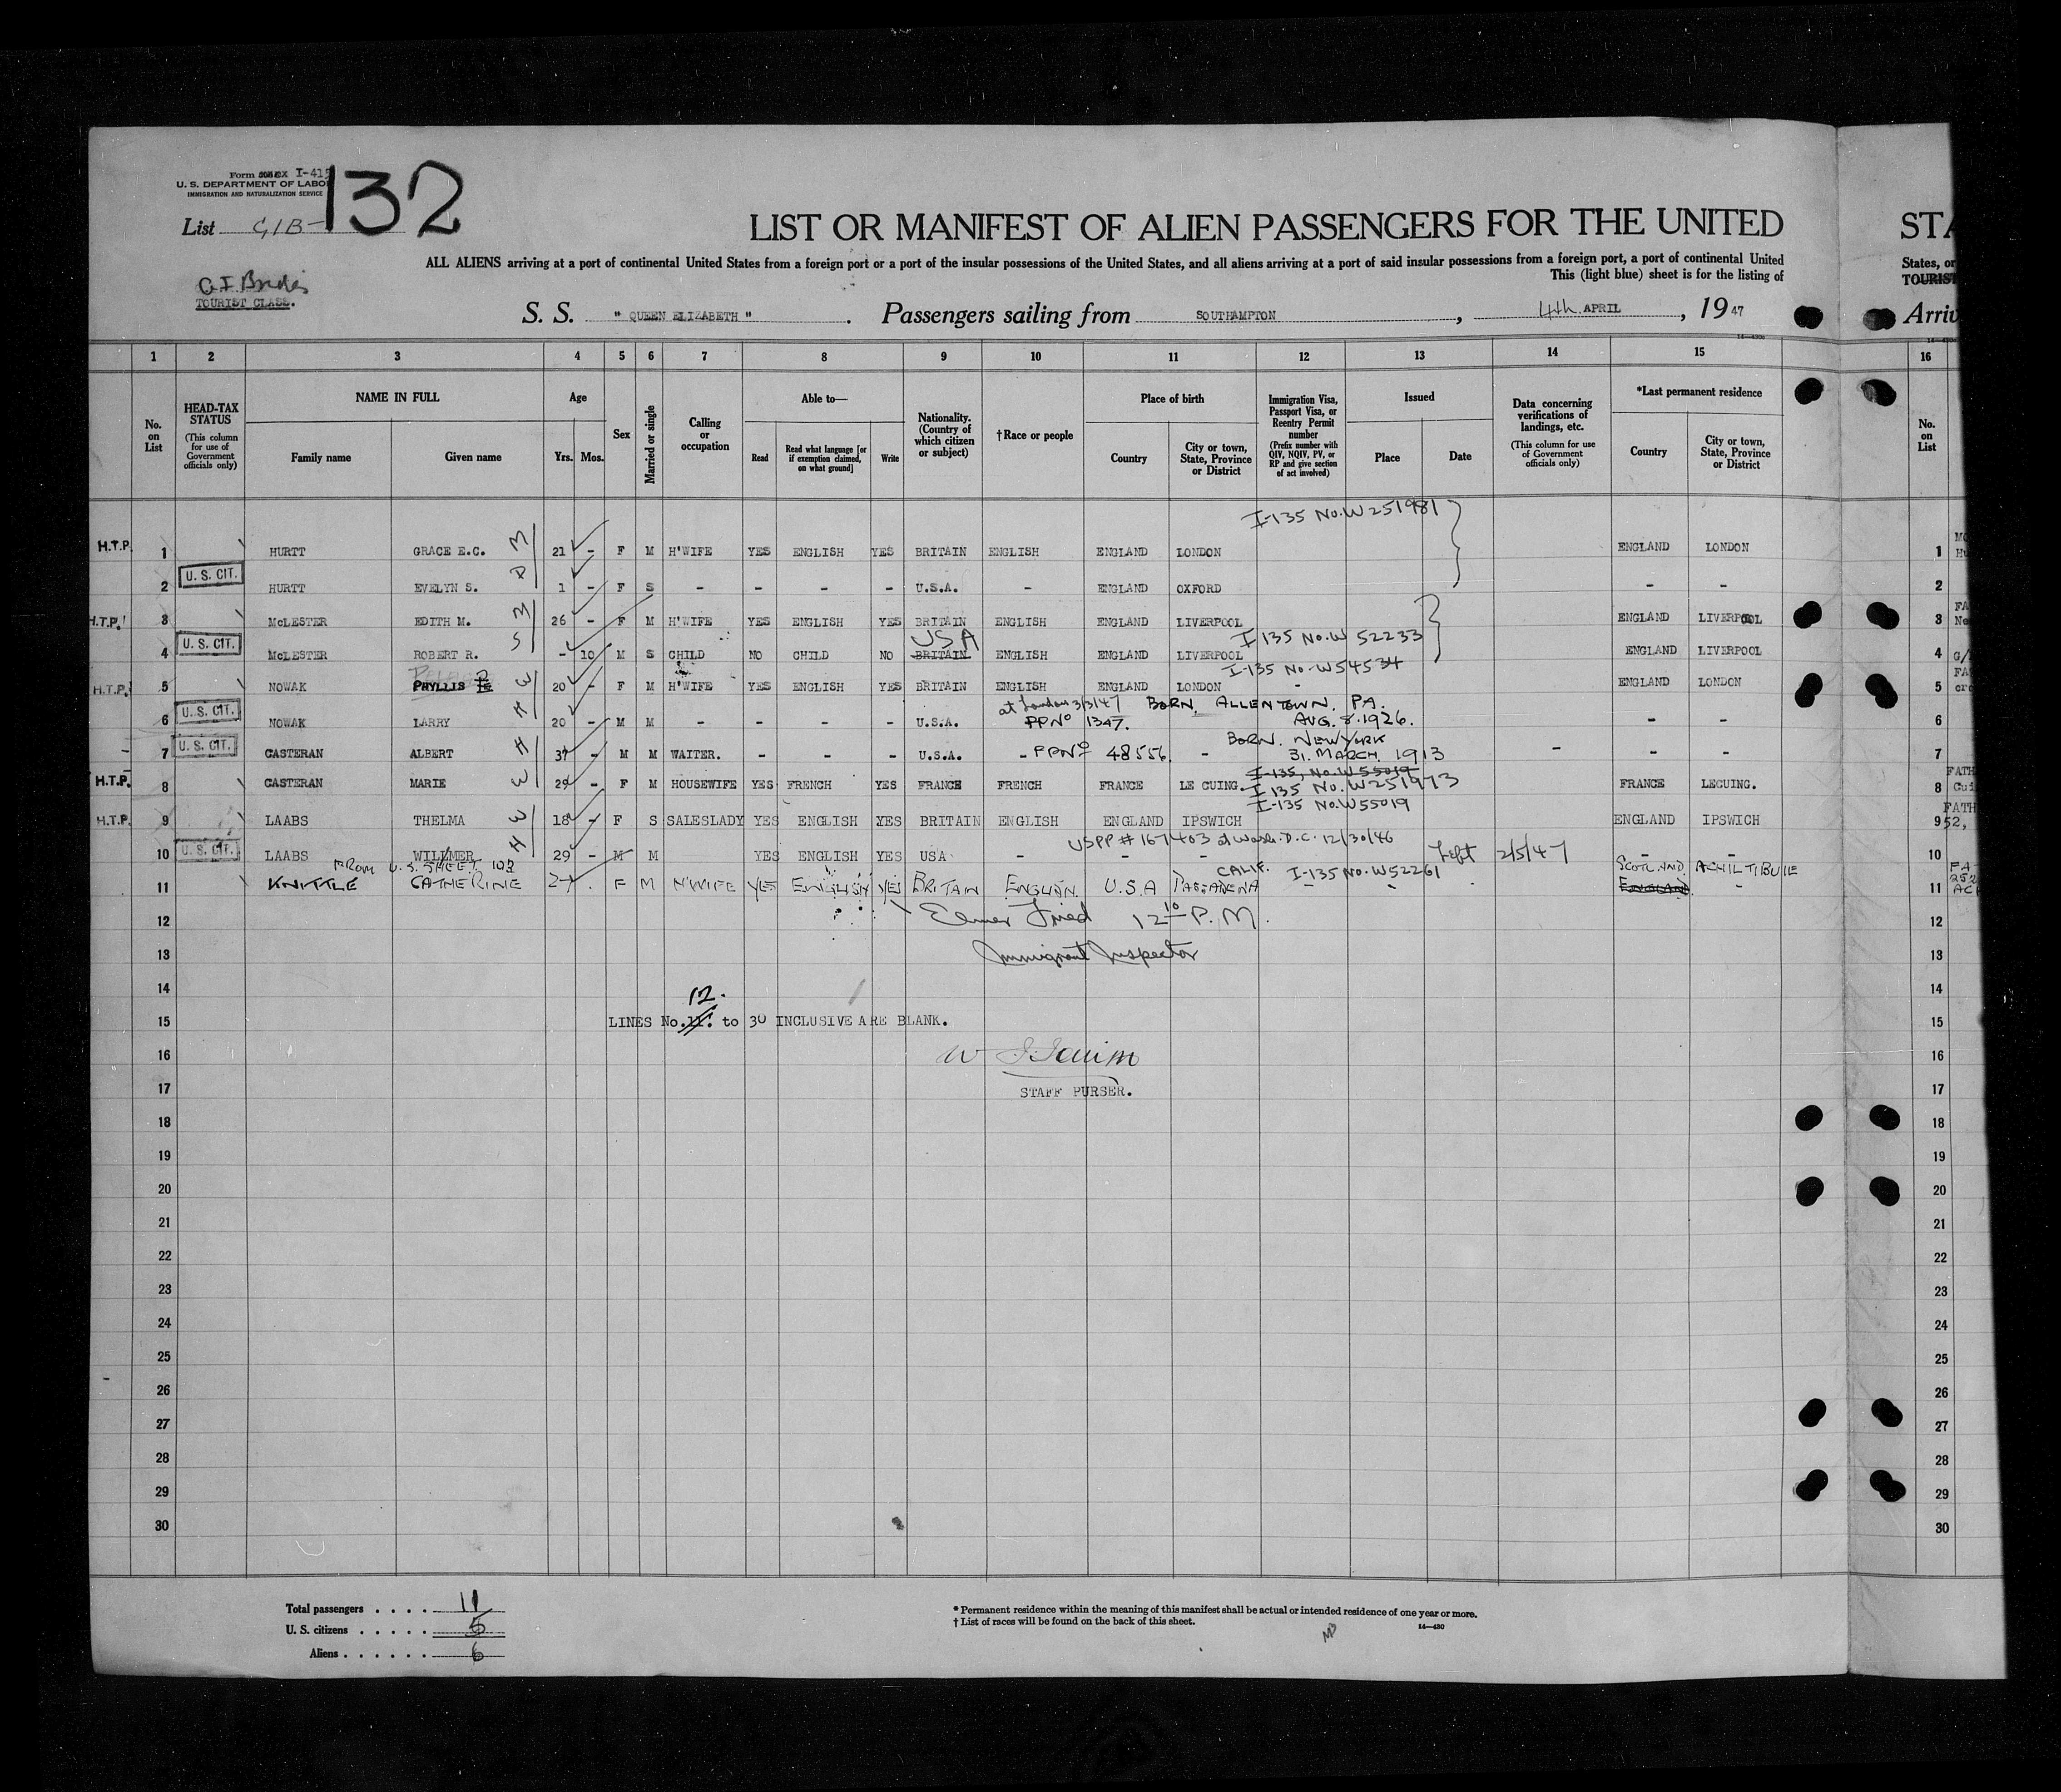 Form I-415
U. S. DEPARTMENT OF LABOR
IMMIGRATION AND NATURALIZATION SERVICE
List GIB- 132
LIST OR MANIFEST OF ALIEN PASSENGERS FOR THE UNITED STA
ALL ALIENS arriving at a port of continental United States from a foreign port or a port of the insular possessions of the United States, and all aliens arriving at a port of said insular possessions from a foreign port, a port of continental United States, or
This (light blue) sheet is for the listing of TOURIST
G.I. Brides
TOURIST CLASS.
S. S. " QUEEN ELIZABETH ". Passengers sailing from SOUTHAMPTON, 4th APRIL, 19 47 Arriv
1 2 3 4 5 6 7 8 9 10 11 12 13 14 15 16
No. on List
HEAD-TAX STATUS (This column for use of Government officials only)
NAME IN FULL Family name Given name
Age Yrs. Mos.
Sex
Married or single
Calling or occupation
Able to— Read Read what language [or if exemption claimed, on what ground] Write
Nationality. (Country of which citizen or subject)
†Race or people
Place of birth Country City or town, State, Province or District
Immigration Visa, Passport Visa, or Reentry Permit number (Prefix number with QIV, NQIV, PV, or RP and give section of act involved)
Issued Place Date
Data concerning verifications of landings, etc. (This column for use of Government officials only)
*Last permanent residence Country City or town, State, Province or District
No. on List
I-135 No. W 251981
H.T.P. 1 HURTT GRACE E.C. M 21 - F M H'WIFE YES ENGLISH YES BRITAIN ENGLISH ENGLAND LONDON ENGLAND LONDON 1
2 U. S. CIT. HURTT EVELYN S. D 1 - F S - - - - U.S.A. - ENGLAND OXFORD - - 2
H.T.P. 3 McLESTER EDITH M. M 26 - F M H'WIFE YES ENGLISH YES BRITAIN ENGLISH ENGLAND LIVERPOOL ENGLAND LIVERPOOL 3
USA I 135 No. W 52233
4 U. S. CIT. McLESTER ROBERT R. S - 10 M S CHILD NO CHILD NO BRITAIN ENGLISH ENGLAND LIVERPOOL ENGLAND LIVERPOOL 4
I-135 No. W54534
H.T.P. 5 NOWAK PHYLLIS W 20 - F M H'WIFE YES ENGLISH YES BRITAIN ENGLISH ENGLAND LONDON - ENGLAND LONDON 5
at London 3/3/47 BORN, ALLENTOWN, PA.
6 U. S. CIT. NOWAK LARRY H 20 - M M - - - - U.S.A. PPNo 1347. AUG. 8. 1926. - - 6
BORN. NEW YORK
7 U. S. CIT. CASTERAN ALBERT H 37 - M M WAITER. - - - U.S.A. - PPNo 48556 - 31. MARCH. 1913 - - - 7
I-135, No. W 55019
H.T.P. 8 CASTERAN MARIE W 29 - F M HOUSEWIFE YES FRENCH YES FRANCE FRENCH FRANCE LE CUING. I 135 No. W251973 FRANCE LECUING. 8
I-135 No. W55019
H.T.P. 9 LAABS THELMA W 18 - F S SALESLADY YES ENGLISH YES BRITAIN ENGLISH ENGLAND IPSWICH ENGLAND IPSWICH 9
USPP # 167403 at Wash. D.C. 12/30/46
10 U. S. CIT. LAABS WILLMER H 29 - M M YES ENGLISH YES USA - - - Left 2/5/47 - - 10
FROM U.S. SHEET. 103
CALIF. I-135 No. W52261 ACHILTIBUIE
11 KNITTLE CATHERINE 27 . F M H'WIFE YES ENGLISH YES BRITAIN ENGLISH. U.S.A PASSADENA - ENGLAND. - 11
12 Elmer Fried 12 10 P. M. 12
13 Immigrant Inspector 13
14 14
12.
15 LINES No. 11. to 30 INCLUSIVE ARE BLANK. 15
16 16
17 STAFF PURSER. 17
18 18
19 19
20 20
21 21
22 22
23 23
24 24
25 25
26 26
27 27
28 28
29 29
30 30
Total passengers . . . . 11
U. S. citizens . . . . . 5
Aliens . . . . . . 6
* Permanent residence within the meaning of this manifest shall be actual or intended residence of one year or more.
† List of races will be found on the back of this sheet.
14—430